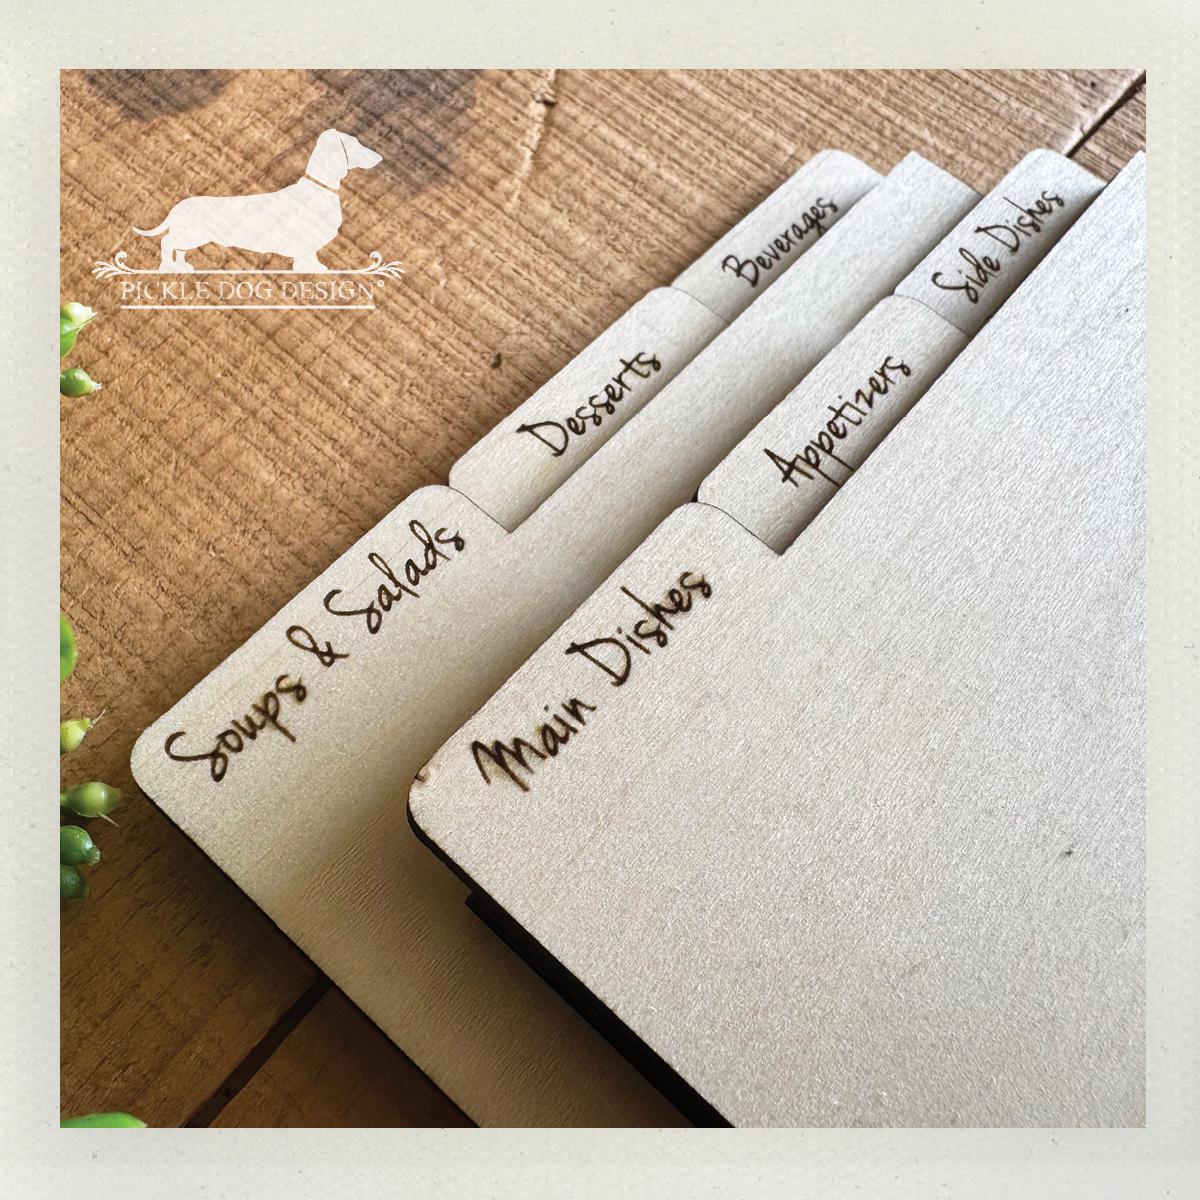 PICKLE DOG DESIGN®
Beverages
Side Dishes
Desserts
Appetizers
Soups & Salads
Main Dishes